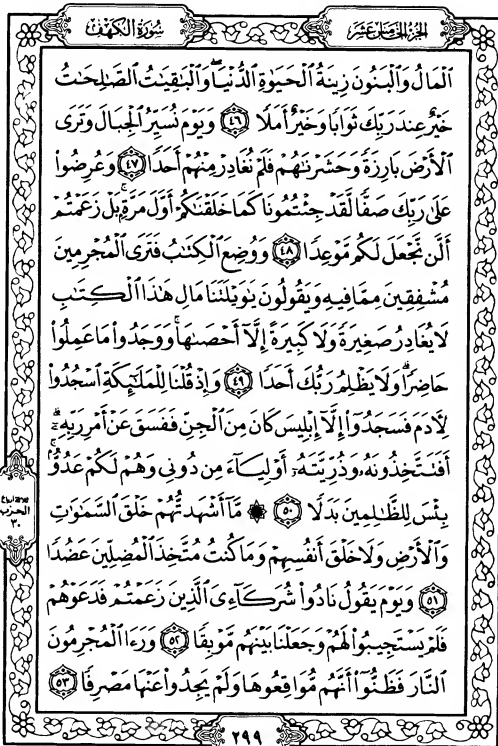 سُورَةُ الكَهْفِ
الجُزءُ الخَامِسَ عَشَرَ
ٱلْمَالُ وَٱلْبَنُونَ زِينَةُ ٱلْحَيَوٰةِ ٱلدُّنْيَا ۖ وَٱلْبَٰقِيَٰتُ ٱلصَّٰلِحَٰتُ
خَيْرٌ عِندَ رَبِّكَ ثَوَابًا وَخَيْرٌ أَمَلًا ٤٦ وَيَوْمَ نُسَيِّرُ ٱلْجِبَالَ وَتَرَى
ٱلْأَرْضَ بَارِزَةً وَحَشَرْنَٰهُمْ فَلَمْ نُغَادِرْ مِنْهُمْ أَحَدًا ٤٧ وَعُرِضُوا۟
عَلَىٰ رَبِّكَ صَفًّا لَّقَدْ جِئْتُمُونَا كَمَا خَلَقْنَٰكُمْ أَوَّلَ مَرَّةٍۭ ۚ بَلْ زَعَمْتُمْ
أَلَّن نَّجْعَلَ لَكُم مَّوْعِدًا ٤٨ وَوُضِعَ ٱلْكِتَٰبُ فَتَرَى ٱلْمُجْرِمِينَ
مُشْفِقِينَ مِمَّا فِيهِ وَيَقُولُونَ يَٰوَيْلَتَنَا مَالِ هَٰذَا ٱلْكِتَٰبِ
لَا يُغَادِرُ صَغِيرَةً وَلَا كَبِيرَةً إِلَّآ أَحْصَىٰهَا ۚ وَوَجَدُوا۟ مَا عَمِلُوا۟
حَاضِرًا ۗ وَلَا يَظْلِمُ رَبُّكَ أَحَدًا ٤٩ وَإِذْ قُلْنَا لِلْمَلَٰٓئِكَةِ ٱسْجُدُوا۟
لِـَٔادَمَ فَسَجَدُوٓا۟ إِلَّآ إِبْلِيسَ كَانَ مِنَ ٱلْجِنِّ فَفَسَقَ عَنْ أَمْرِ رَبِّهِۦٓ ۗ
أَفَتَتَّخِذُونَهُۥ وَذُرِّيَّتَهُۥٓ أَوْلِيَآءَ مِن دُونِى وَهُمْ لَكُمْ عَدُوٌّۢ ۚ
بِئْسَ لِلظَّٰلِمِينَ بَدَلًا ٥٠ ۞ مَّآ أَشْهَدتُّهُمْ خَلْقَ ٱلسَّمَٰوَٰتِ
وَٱلْأَرْضِ وَلَا خَلْقَ أَنفُسِهِمْ وَمَا كُنتُ مُتَّخِذَ ٱلْمُضِلِّينَ عَضُدًا
٥١ وَيَوْمَ يَقُولُ نَادُوا۟ شُرَكَآءِىَ ٱلَّذِينَ زَعَمْتُمْ فَدَعَوْهُمْ
فَلَمْ يَسْتَجِيبُوا۟ لَهُمْ وَجَعَلْنَا بَيْنَهُم مَّوْبِقًا ٥٢ وَرَءَا ٱلْمُجْرِمُونَ
ٱلنَّارَ فَظَنُّوٓا۟ أَنَّهُم مُّوَاقِعُوهَا وَلَمْ يَجِدُوا۟ عَنْهَا مَصْرِفًا ٥٣
الحزب
٣٠
٢٩٩